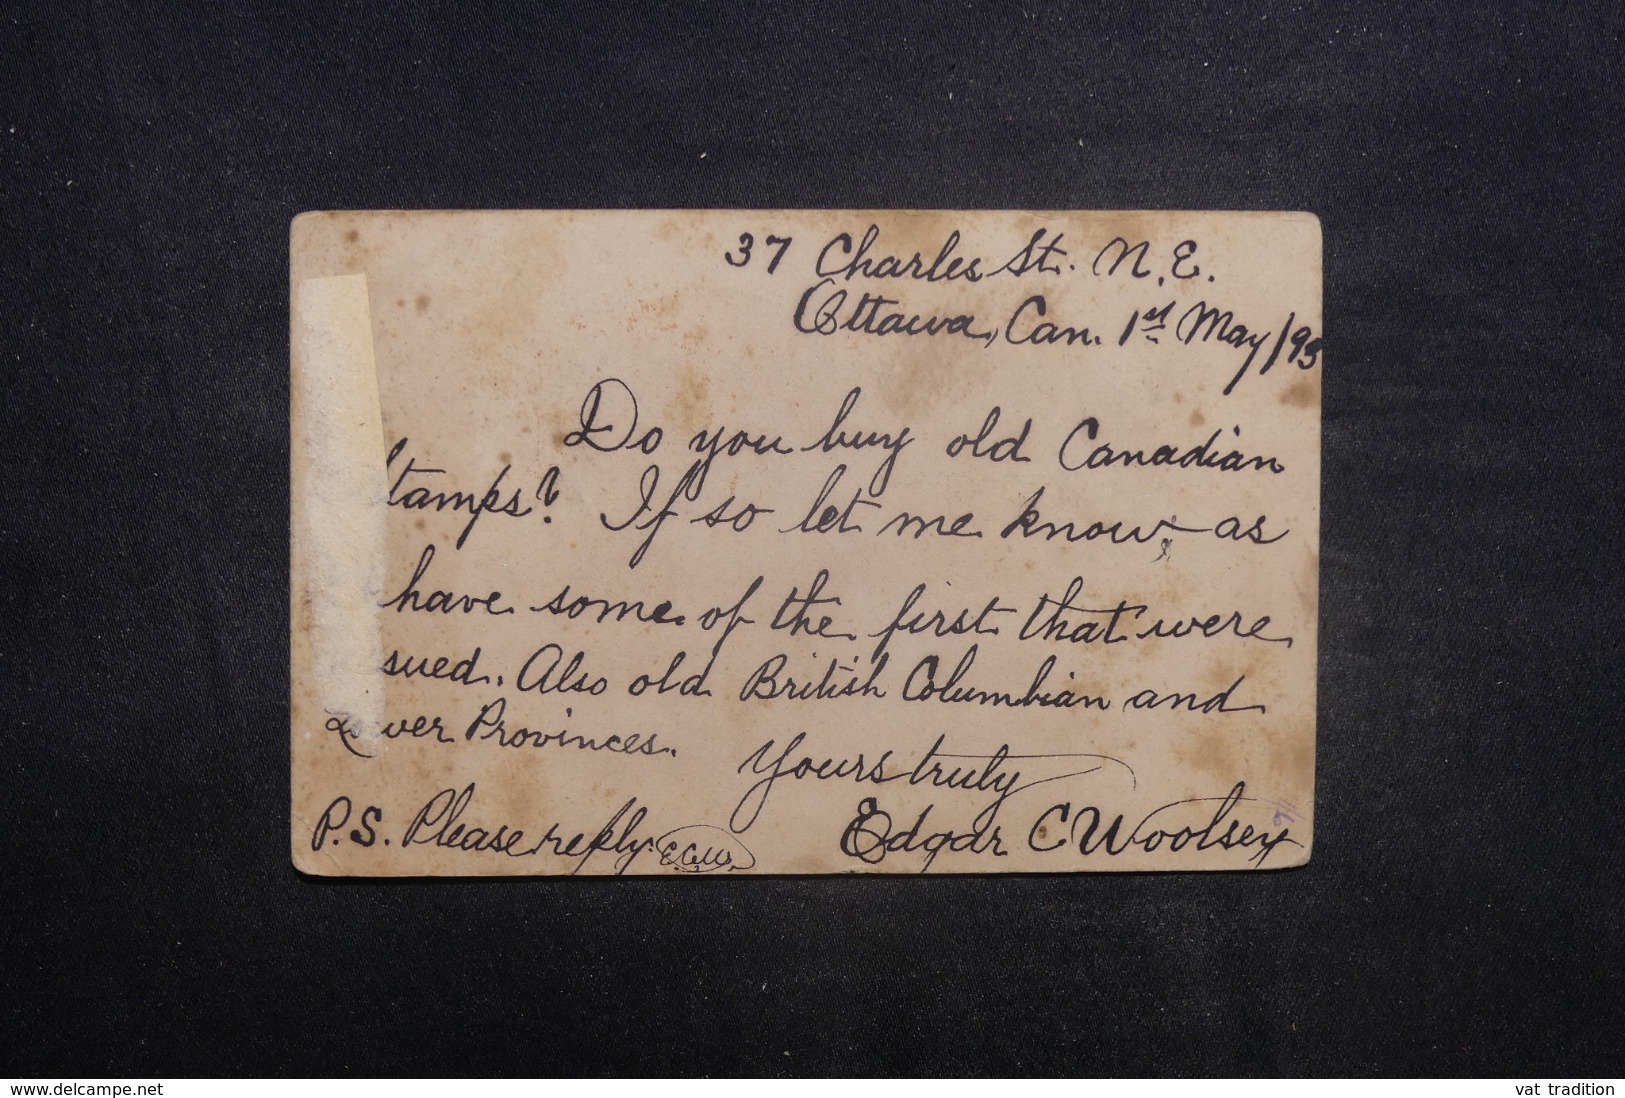 37 Charles St. N.E.
Ottawa, Can. 1st May/95
Do you buy old Canadian
tamps? If so let me know, as
have some of the first that were
sued. Also old British Columbian and
Lower Provinces.
Yours truly
P.S. Please reply. E.C.W.
Edgar C Woolsey
www.delcampe.net
vat tradition